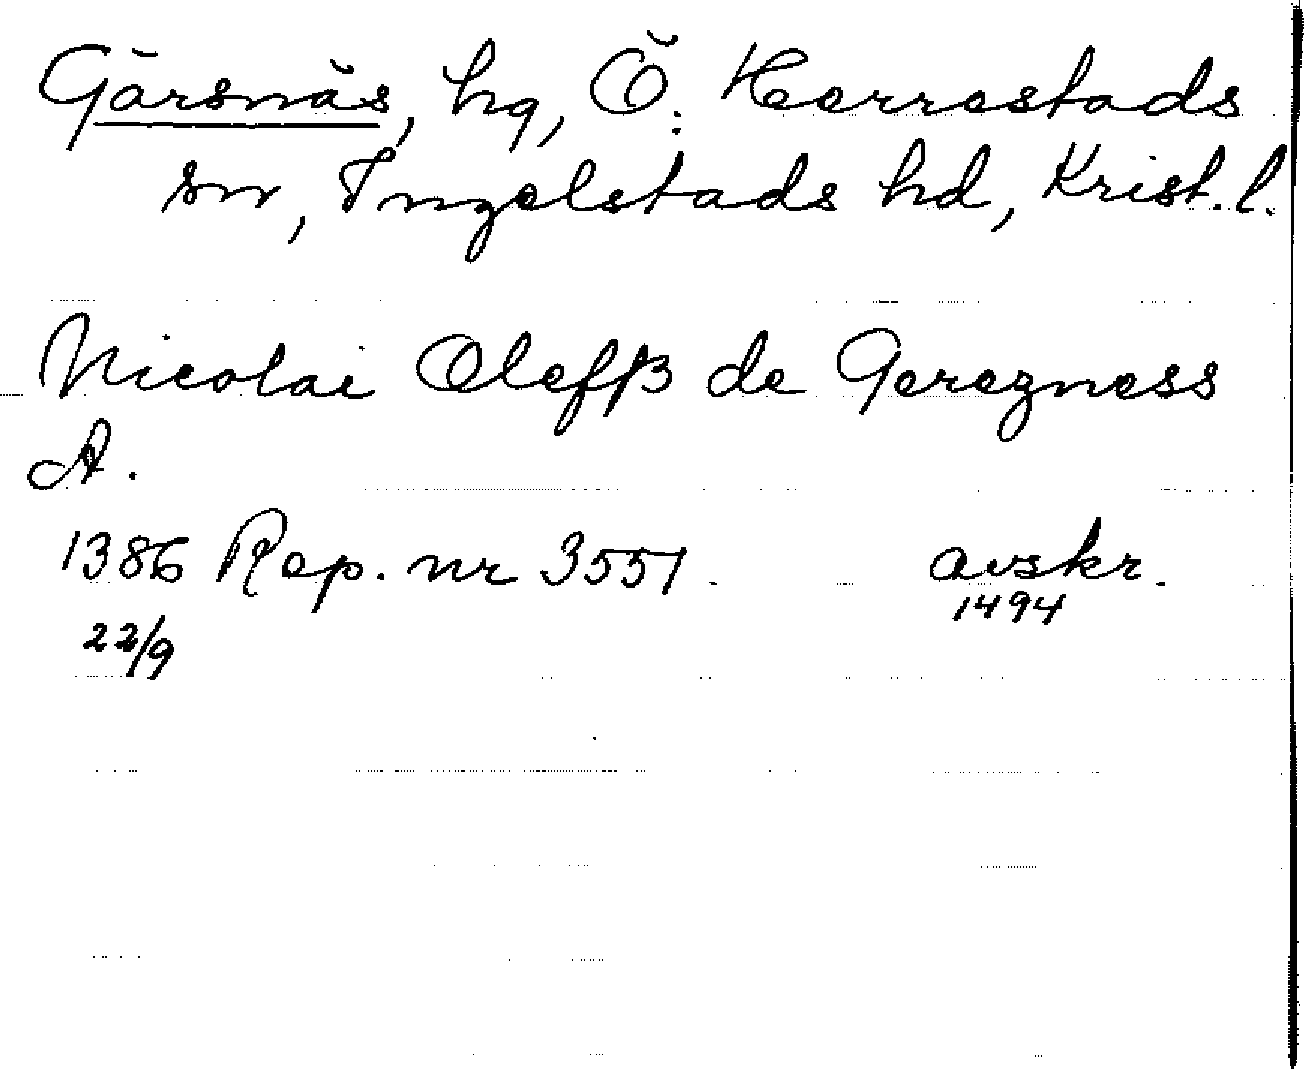 Gärsnäs, hg, Ö. Herrestads
sn, Ingelstads hd, Krist. l.
Nicolai Oleffß de Geregness
A.
1386 Rep. nr 3551. avskr.
22/9 1494